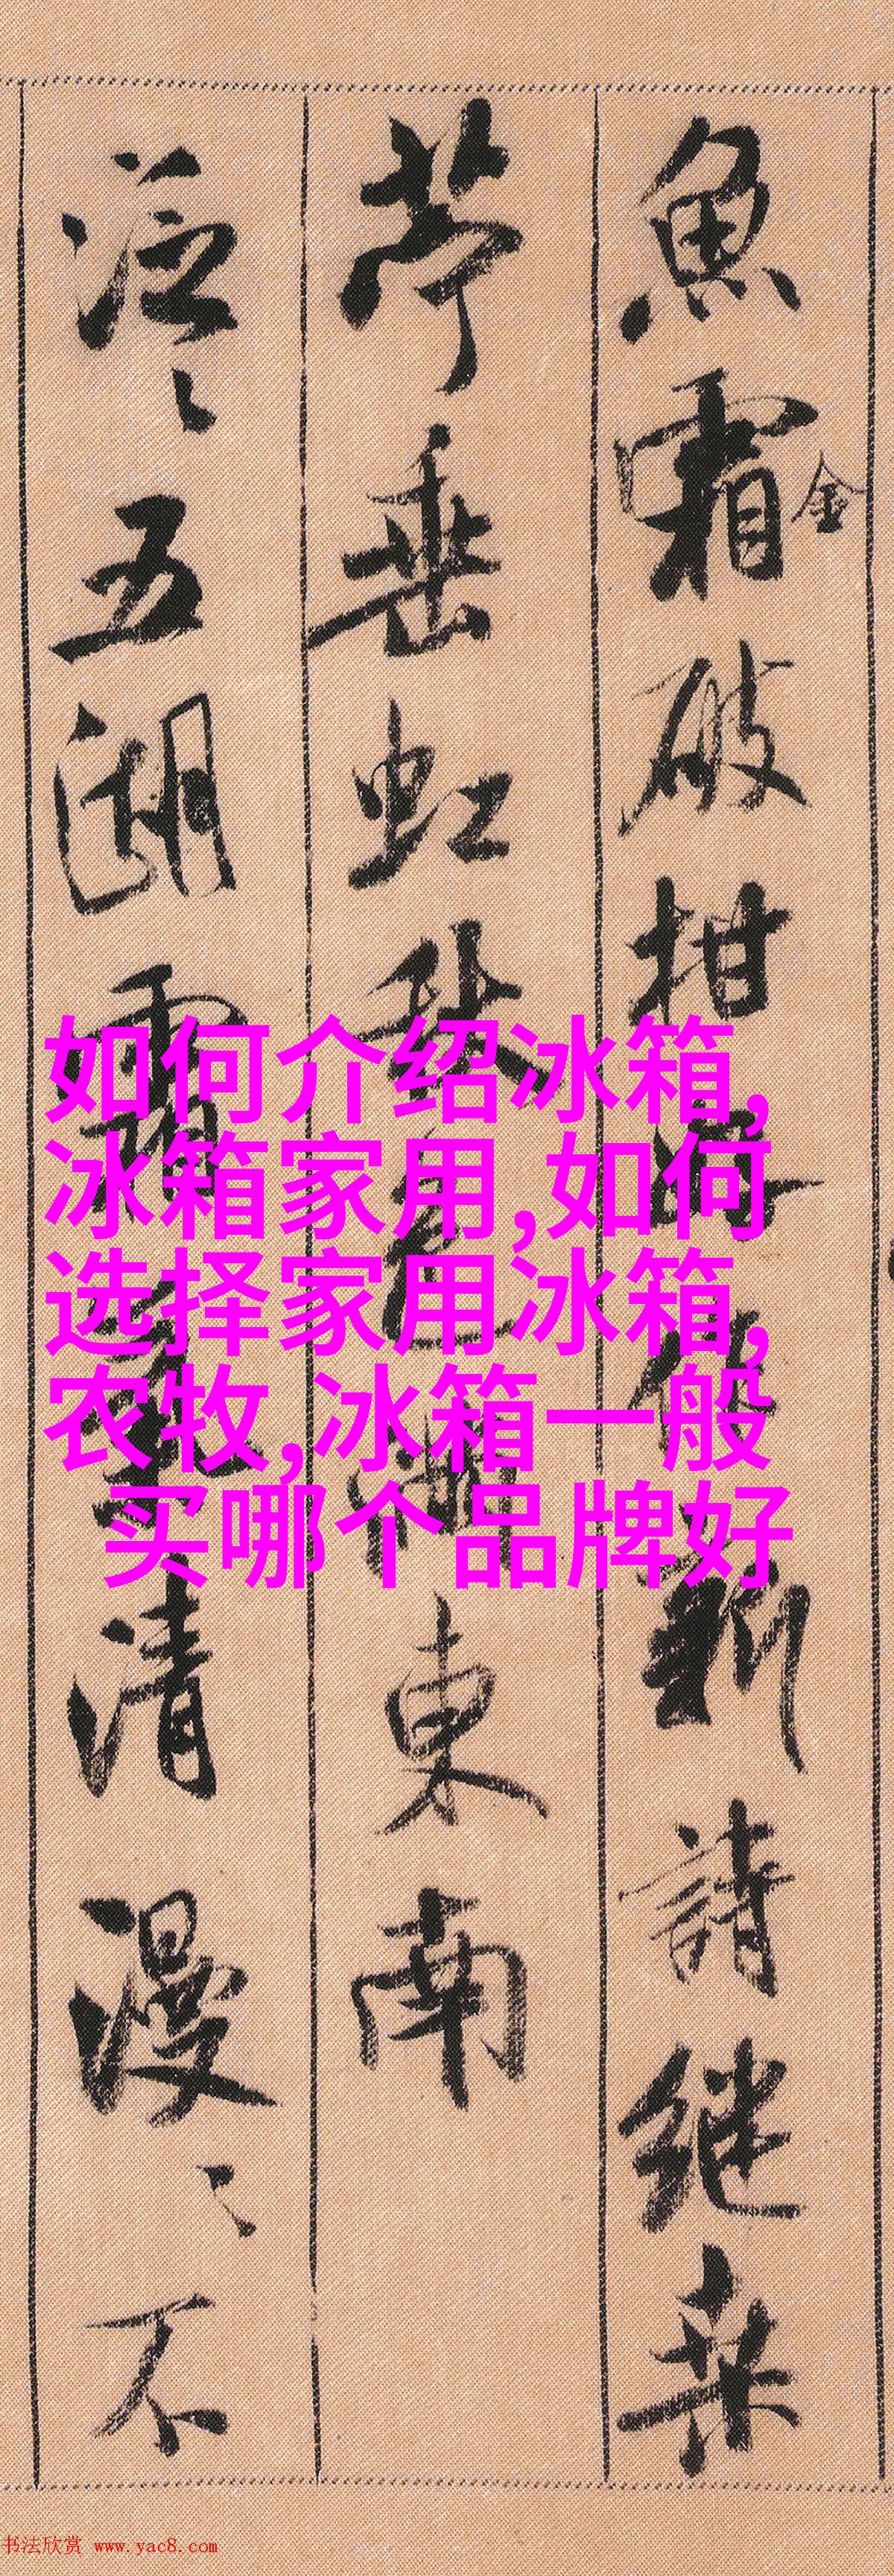 魚霜金破柑海作新詩继桒
苧垂虹秋色湖東南
泛〻五湖霜氣清漫〻不
如何介绍冰箱,
冰箱家用,如何
选择家用冰箱,
农牧,冰箱一般
买哪个品牌好
书法欣赏 www.yac8.com